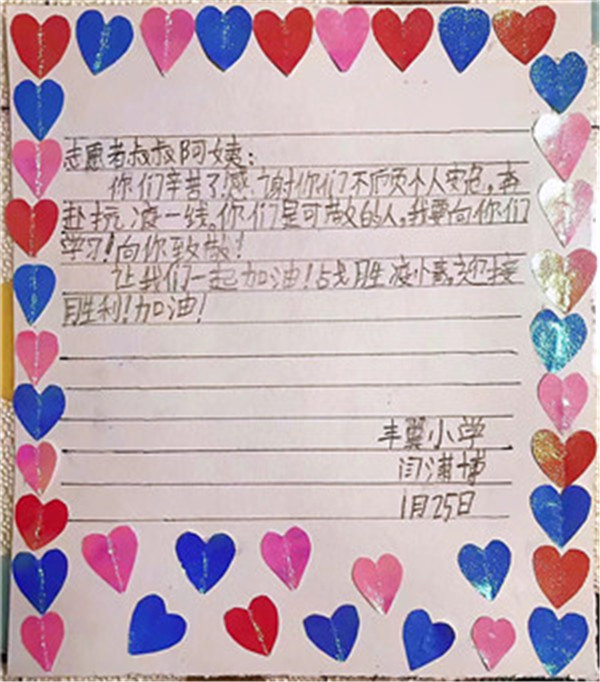 志愿者叔叔阿姨：
你们辛苦了!感谢你们不顾个人安危,奔
赴抗疫一线。你们是可敬的人,我要向你们
学习!向你致敬!
让我们一起加油!战胜疫情,迎接
胜利!加油!
丰翼小学
闫潇博
1月25日